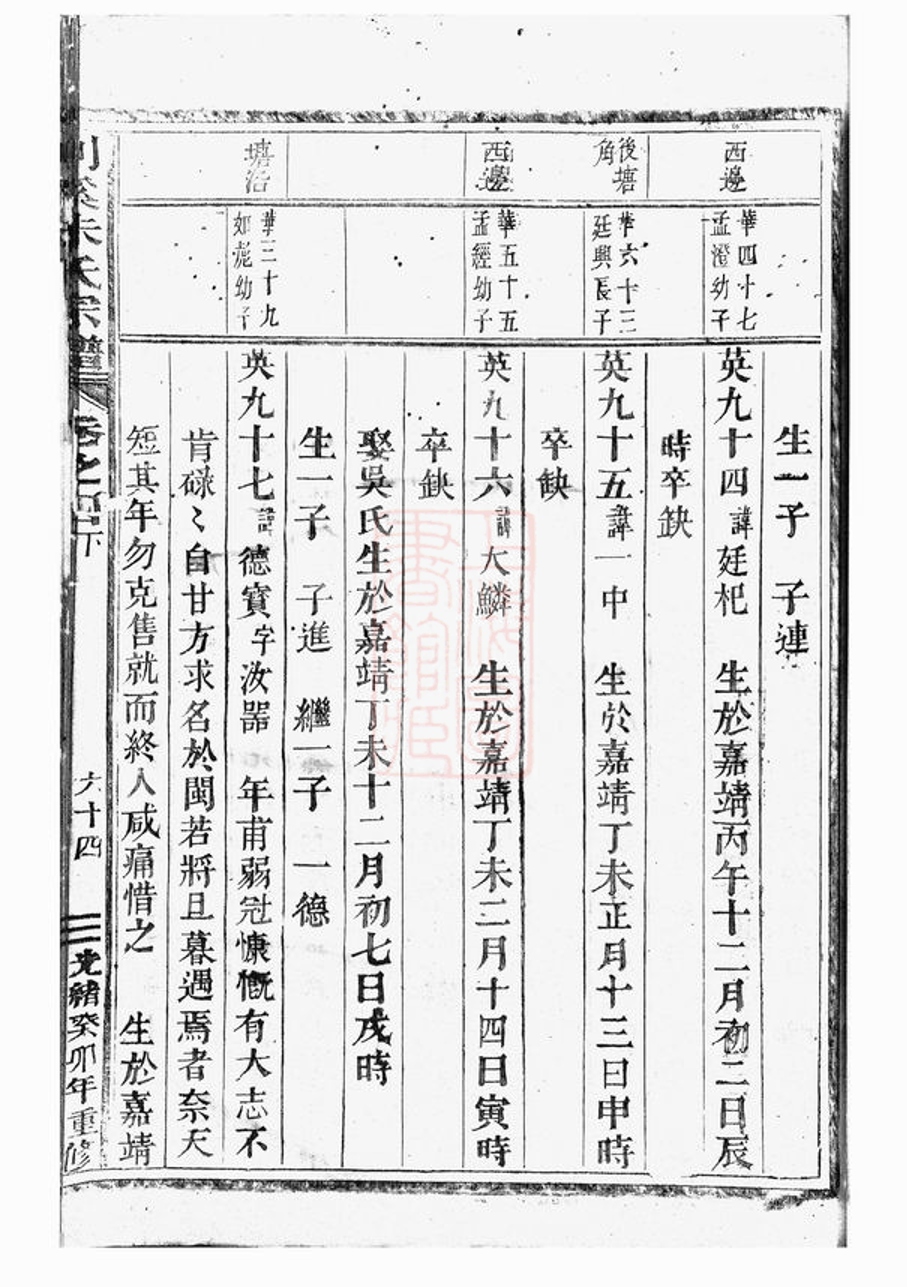 生一子 子連
西邊
華四十七
孟澄幼子
英九十四諱廷杞 生於嘉靖丙午十二月初二日辰
時卒缺
後塘
角
華六十三
廷興長子
英九十五諱一中 生於嘉靖丁未正月十三日申時
卒缺
西邊
華五十五
孟經幼子
英九十六諱大鱗 生於嘉靖丁未二月十四日寅時
卒缺
娶吳氏生於嘉靖丁未十二月初七日戌時
生一子 子進 繼一子 一德
塘沿
華三十九
如 幼子
英九十七諱德寶字汝器 年甫弱冠慷慨有大志不
肯碌〻自甘方求名於閩若將旦暮遇焉者奈天
短其年勿克售就而終人咸痛惜之 生於嘉靖
朱氏宗譜 卷之四下 六十四 光緒癸卯年重修